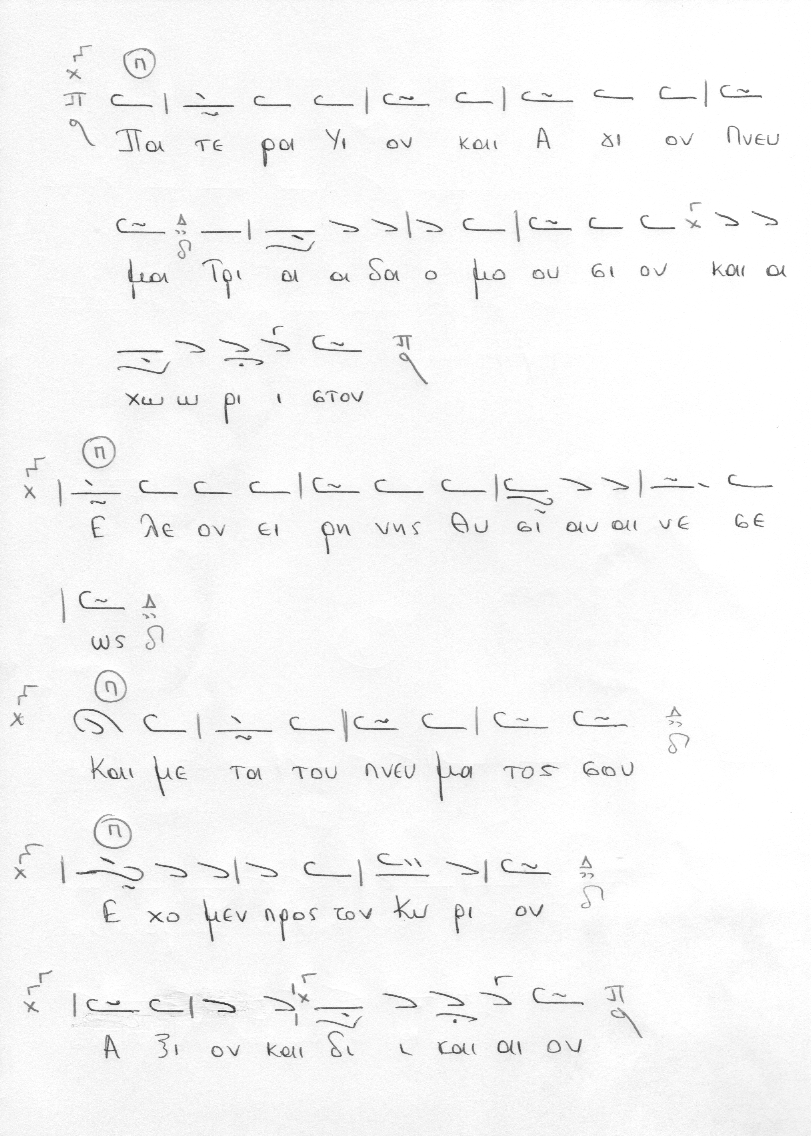 Π
Πα τε ρα Υι ον και Α γι ον Πνευ
μα Τρι α α δα ο μο ου σι ον και α
χω ω ρι ι στον
Π
Ε λε ον ει ρη νης θυ σι αν αι νε σε
ως
Π
Και με τα του πνευ μα τος σου
Π
Ε χο μεν προς τον Κυ ρι ον
Α ξι ον και δι ι και αι ον